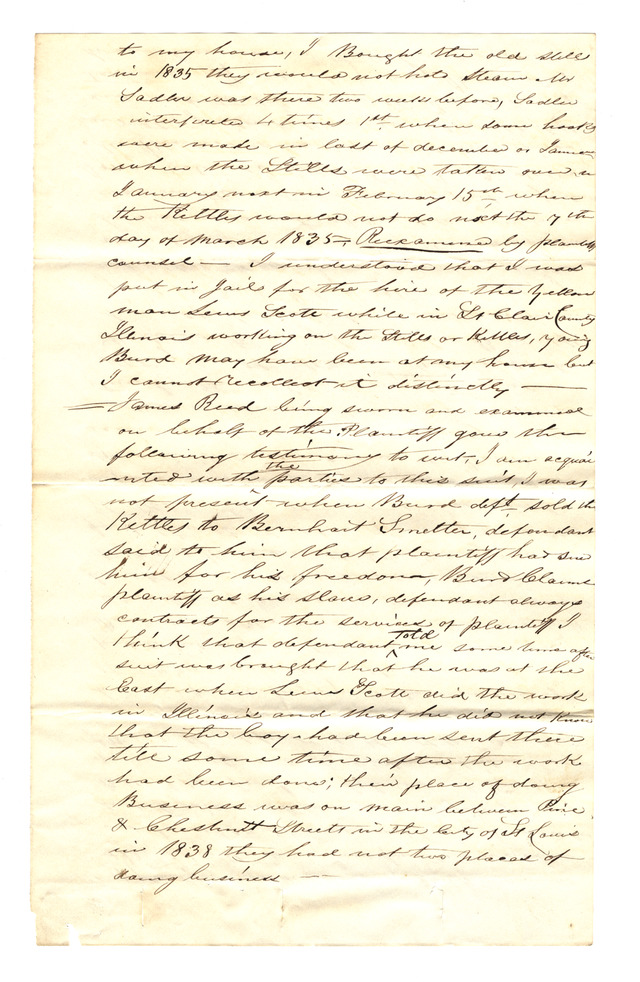 to my house, I Bought the old still
in 1835 they would not hold Steam Mr
Sadler was there two weeks before, Sadler
interprete 4 times 1st. when some hooks
were made in last of december or January
when the Stills were taken over in
January next in February 15th when
the Kettles would not do next the 7th
day of March 1835 — Reexamined by plaintiffs
counsel — I understood that I was
put in Jail for the hire of the Yellow
man Lewis Scott while in St Clair County
Illinois working on the Stills or Kettles, young
Burd may have been at my house but
I cannot recollect it distinctly —
James Reed being sworn and examined
on behalf of the Plaintiff gave the
following testimony to wit, I am acquai
nted with the parties to this suit, I was
not present when Burd deft. sold the
Kettles to Bernhart Smetter, defendant
said to him that plaintiff had sued
him for his freedom, Burd Claims
plaintiff as his slave, defendant always
contracts for the services of plaintiff I
think that defendant Told me some time after
suit was brought that he was at the
East when Lewis Scott did the work
in Illinois and that he did not know
that the boy had been sent there
till some time after the work
had been done; their place of doing
Business was on main between Pine
& Chesnutt Streets in the City of St Louis
in 1838 they had not two places of
doing business —